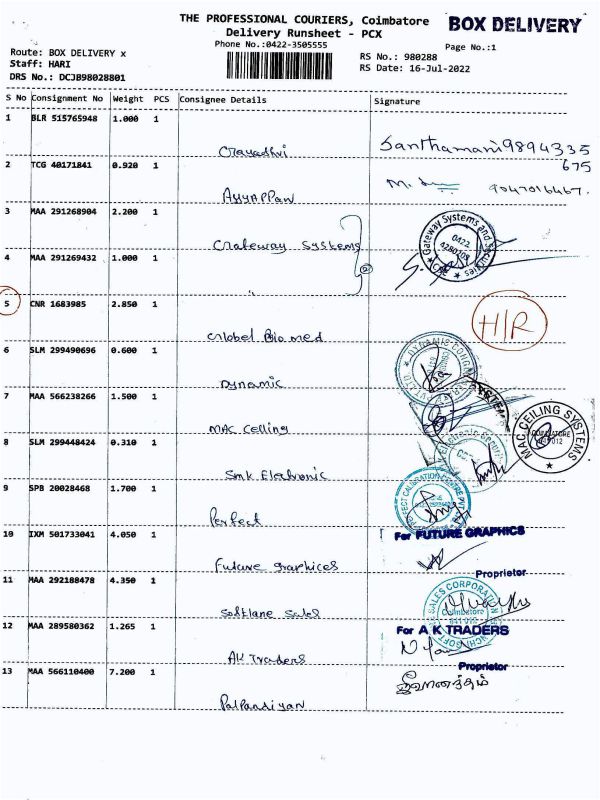 THE PROFESSIONAL COURIERS, Coimbatore
BOX DELIVERY
Delivery Runsheet - PCX
Phone No.:0422-3505555
Page No.:1
Route: BOX DELIVERY x
RS No.: 980288
Staff: HARI
RS Date: 16-Jul-2022
DRS No.: DCJB98028801
S No Consignment No Weight PCS Consignee Details Signature
1 BLR 515765948 1.000 1
Gayadhri Santhamani 9894335
675
2 TCG 40171841 0.920 1
Ayyappan 9047016467.
3 MAA 291268904 2.200 1
Gateway Systems Gateway Systems and Securities
0422
4280108
CBE
4 MAA 291269432 1.000 1
2
5 CNR 1683985 2.850 1
Global Bio med H/R
6 SLM 299490696 0.600 1
Dynamic DYNAMIC
7 MAA 566238266 1.500 1
MAC Ceiling MAC CEILING SYSTEMS
COIMBATORE
641 012
8 SLM 299448424 0.310 1
Smk Electronic
9 SPB 20028468 1.700 1
Perfect PERFECT CALIBRATION CENTRE
10 IXM 501733041 4.050 1
For FUTURE GRAPHICS
Future graphices
Proprietor
11 MAA 292188478 4.350 1
Softlane Sales SALES CORPORATION
Coimbatore
12 MAA 289580362 1.265 1
For A K TRADERS
AK Traders
Proprietor
13 MAA 566110400 7.200 1
ஜீவானந்தம்
Palpandiyan